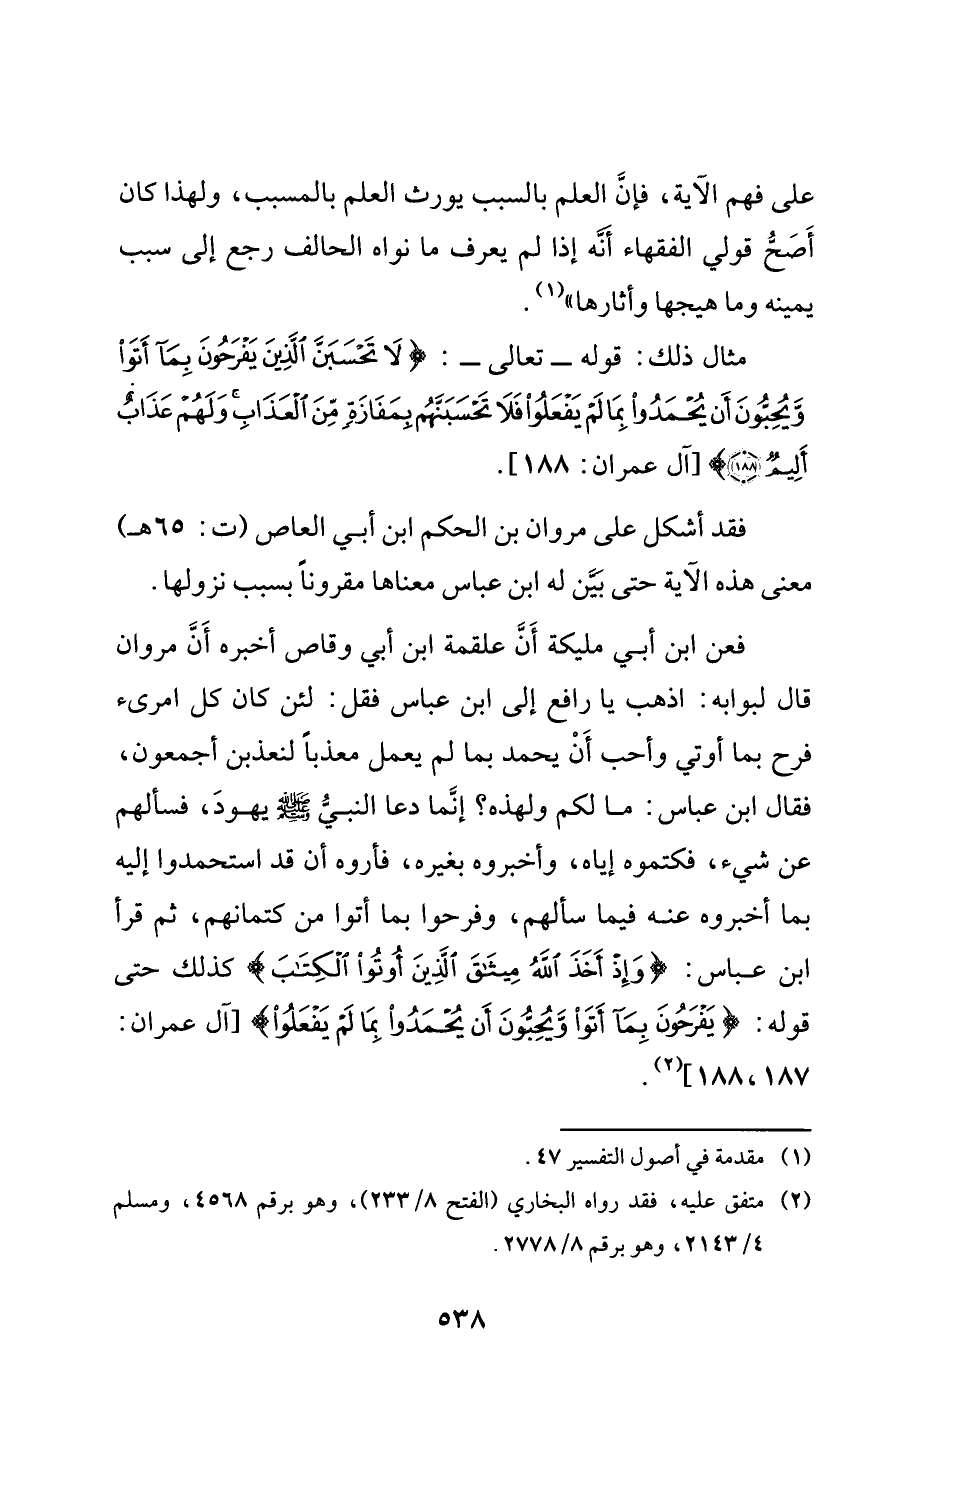 على فهم الآية، فإنَّ العلم بالسبب يورث العلم بالمسبب، ولهذا كان
أَصَحُّ قولي الفقهاء أَنَّه إذا لم يعرف ما نواه الحالف رجع إلى سبب
يمينه وما هيجها وأثارها»(١) .
مثال ذلك: قوله ــ تعالى ــ : ﴿ لَا تَحْسَبَنَّ ٱلَّذِينَ يَفْرَحُونَ بِمَآ أَتَوا۟
وَّيُحِبُّونَ أَن يُحْمَدُوا۟ بِمَا لَمْ يَفْعَلُوا۟ فَلَا تَحْسَبَنَّهُم بِمَفَازَةٍ مِّنَ ٱلْعَذَابِ ۚ وَلَهُمْ عَذَابٌ
أَلِيمٌ ﴿١٨٨﴾﴾ [آل عمران: ١٨٨].
فقد أشكل على مروان بن الحكم ابن أبـي العاص (ت: ٦٥هـ)
معنى هذه الآية حتى بَيَّن له ابن عباس معناها مقروناً بسبب نزولها.
فعن ابن أبـي مليكة أَنَّ علقمة ابن أبي وقاص أخبره أَنَّ مروان
قال لبوابه: اذهب يا رافع إلى ابن عباس فقل: لئن كان كل امرىء
فرح بما أوتي وأحب أَنْ يحمد بما لم يعمل معذباً لنعذبن أجمعون،
فقال ابن عباس: مـا لكم ولهذه؟ إنَّما دعا النبـيُّ ﷺ يهـودَ، فسألهم
عن شيء، فكتموه إياه، وأخبروه بغيره، فأروه أن قد استحمدوا إليه
بما أخبروه عنـه فيما سألهم، وفرحوا بما أتوا من كتمانهم، ثم قرأ
ابن عـباس: ﴿ وَإِذْ أَخَذَ ٱللَّهُ مِيثَٰقَ ٱلَّذِينَ أُوتُوا۟ ٱلْكِتَٰبَ ﴾ كذلك حتى
قوله: ﴿ يَفْرَحُونَ بِمَآ أَتَوا۟ وَّيُحِبُّونَ أَن يُحْمَدُوا۟ بِمَا لَمْ يَفْعَلُوا۟ ﴾ [آل عمران:
١٨٧ ،١٨٨](٢) .
(١) مقدمة في أصول التفسير ٤٧ .
(٢) متفق عليه، فقد رواه البخاري (الفتح ٨/ ٢٣٣)، وهو برقم ٤٥٦٨، ومسلم
٤/ ٢١٤٣، وهو برقم ٨/ ٢٧٧٨ .
٥٣٨